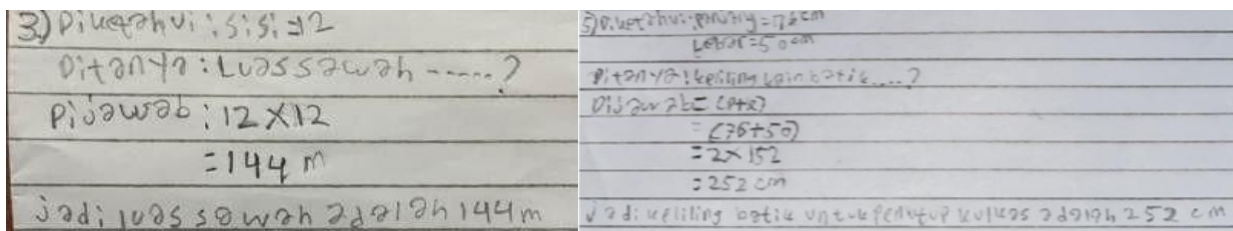 3) Diketahui : sisi = 12
Ditanya : Luas sawah -----?
Dijawab : 12 X 12
= 144 m
jadi luas sawah adalah 144 m
5) Diketahui : panjang = 76 cm
Lebar = 50 cm
Ditanya : keliling kain batik ....?
Dijawab = (p+l)
= (76+50)
= 2 x 152
= 252 cm
jadi keliling batik untuk penutup kulkas adalah 252 cm